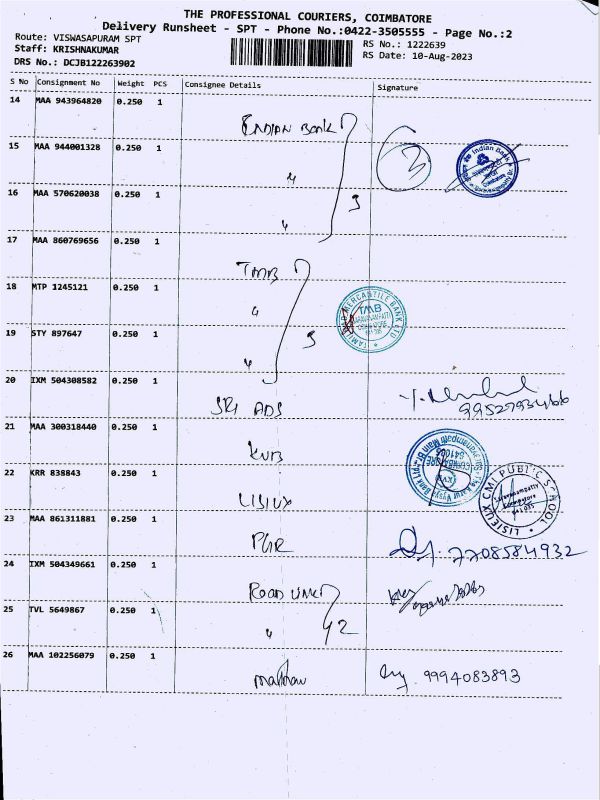 THE PROFESSIONAL COURIERS, COIMBATORE
Delivery Runsheet - SPT - Phone No.:0422-3505555 - Page No.:2
Route: VISWASAPURAM SPT
Staff: KRISHNAKUMAR
DRS No.: DCJB122263902
RS No.: 1222639
RS Date: 10-Aug-2023
S No Consignment No Weight PCS Consignee Details Signature
14 MAA 943964820 0.250 1 INDIAN BANK
15 MAA 944001328 0.250 1 " 3
Indian Bank
16 MAA 570620038 0.250 1 " 3
17 MAA 860769656 0.250 1 TMB
18 MTP 1245121 0.250 1 "
TAMILNAD MERCANTILE BANK LTD
TMB
19 STY 897647 0.250 1 " 3
20 IXM 504308582 0.250 1 SRI ADS
21 MAA 300318440 0.250 1 KVB
The Karur Vysya Bank
KVB
22 KRR 838843 0.250 1 LISIUX
LISIEUX CMI PUBLIC SCHOOL
Saravanampatty
Coimbatore
641 035
23 MAA 861311881 0.250 1 PGR 7708584932
24 IXM 504349661 0.250 1
25 TVL 5649867 0.250 1 " 2
26 MAA 102256079 0.250 1 9994083893